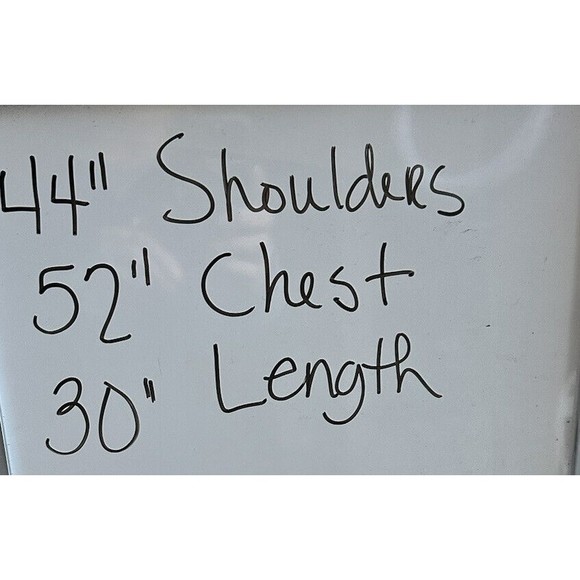 44" Shoulders
52" Chest
30" Length